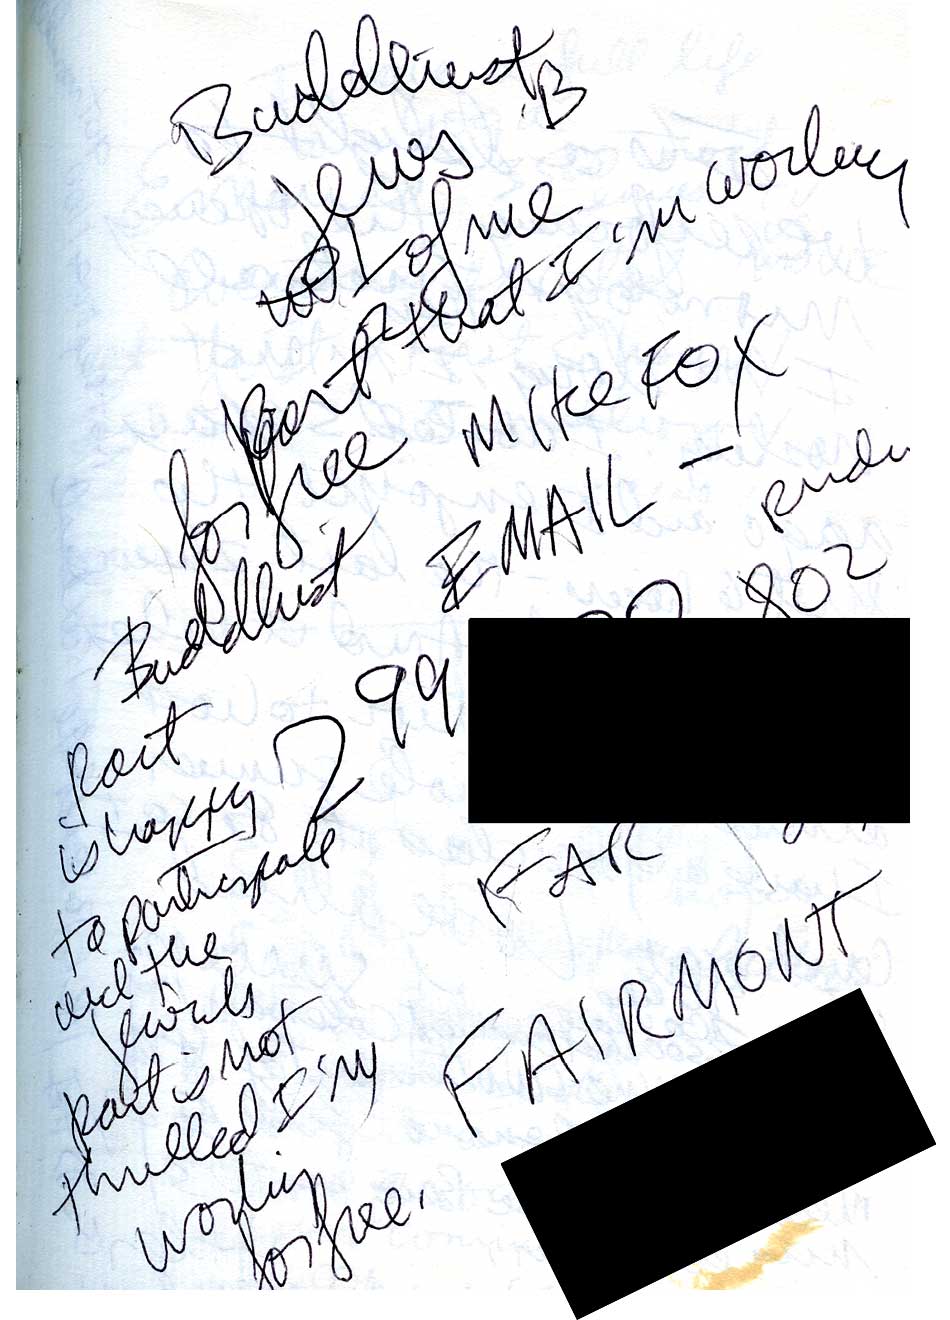 Buddhist B
Jews
not of me
part that I'm working
for free
MIKE FOX
EMAIL –
802
Buddhist
299
part
is happy
to participate
and the
Jewish
part is not
thrilled I'm
working
for free.
FAR
FAIRMONT